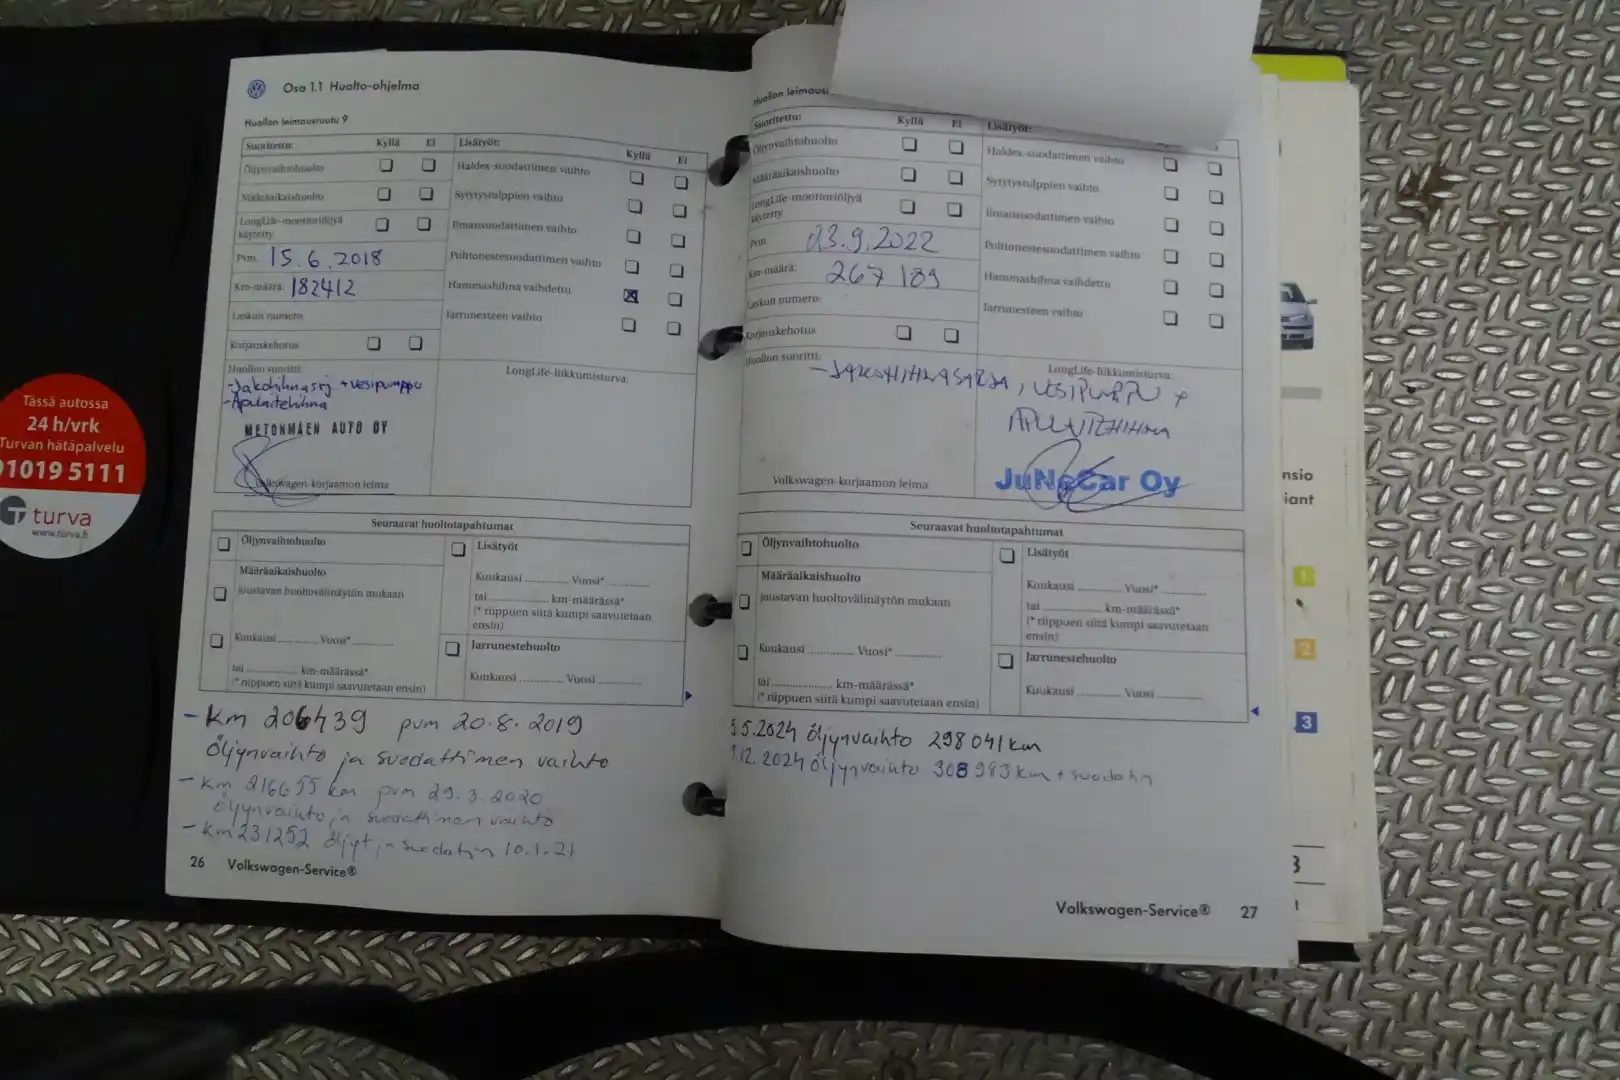 Tässä autossa
24 h/vrk
Turvan hätäpalvelu
01019 5111
turva
www.turva.fi
Osa 1.1 Huolto-ohjelma
Huollon leimausruutu 9
Suoritettu: Kyllä Ei
Öljynvaihtohuolto
Määräaikaishuolto
LongLife-moottoriöljyä
käytetty
Pvm. 15.6.2018
Km-määrä: 182412
Laskun numero:
Korjauskehotus
Huollon suoritti:
-Jakohihnasrj + vesipumppu
-Apulaitehihna
METONMÄEN AUTO OY
Volkswagen-korjaamon leima
Lisätyöt: Kyllä Ei
Haldex-suodattimen vaihto
Sytytystulppien vaihto
Ilmansuodattimen vaihto
Polttonestesuodattimen vaihto
Hammashihna vaihdettu
Jarrunesteen vaihto
LongLife-liikkumisturva:
Seuraavat huoltotapahtumat
Öljynvaihtohuolto
Määräaikaishuolto
joustavan huoltovälinäytön mukaan
Kuukausi ............ Vuosi* ............
tai ............... km-määrässä*
(* riippuen siitä kumpi saavutetaan ensin)
Lisätyöt
Kuukausi ............. Vuosi* ............
tai ............... km-määrässä*
(* riippuen siitä kumpi saavutetaan
ensin)
Jarrunestehuolto
Kuukausi ............. Vuosi .............
- Km 206439 pvm 20.8.2019
Öljynvaihto ja suodattimen vaihto
- Km 216655 km pvm 29.3.2020
Öljynvaihto ja suodattimen vaihto
- Km 231252 öljyt ja suodatin 10.1.21
26 Volkswagen-Service®
Huollon leimausr
Suoritettu: Kyllä Ei
Öljynvaihtohuolto
Määräaikaishuolto
LongLife-moottoriöljyä
käytetty
Pvm. 23.9.2022
Km-määrä: 267 189
Laskun numero:
Korjauskehotus
Huollon suoritti:
- JAKOHIHNASARJA, VESIPUMPPU +
APULAITEHIHNA
JuNaCar Oy
Volkswagen-korjaamon leima
Lisätyöt:
Haldex-suodattimen vaihto
Sytytystulppien vaihto
Ilmansuodattimen vaihto
Polttonestesuodattimen vaihto
Hammashihna vaihdettu
Jarrunesteen vaihto
LongLife-liikkumisturva:
Seuraavat huoltotapahtumat
Öljynvaihtohuolto
Määräaikaishuolto
joustavan huoltovälinäytön mukaan
Kuukausi .............. Vuosi* .............
tai .................. km-määrässä*
(* riippuen siitä kumpi saavutetaan ensin)
Lisätyöt
Kuukausi ............. Vuosi* .............
tai ................ km-määrässä*
(* riippuen siitä kumpi saavutetaan
ensin)
Jarrunestehuolto
Kuukausi ............. Vuosi .............
5.5.2024 öljynvaihto 298041 km
.12.2024 öljynvaihto 308983 km + suodatin
Volkswagen-Service® 27
nsio
iant
1
2
3